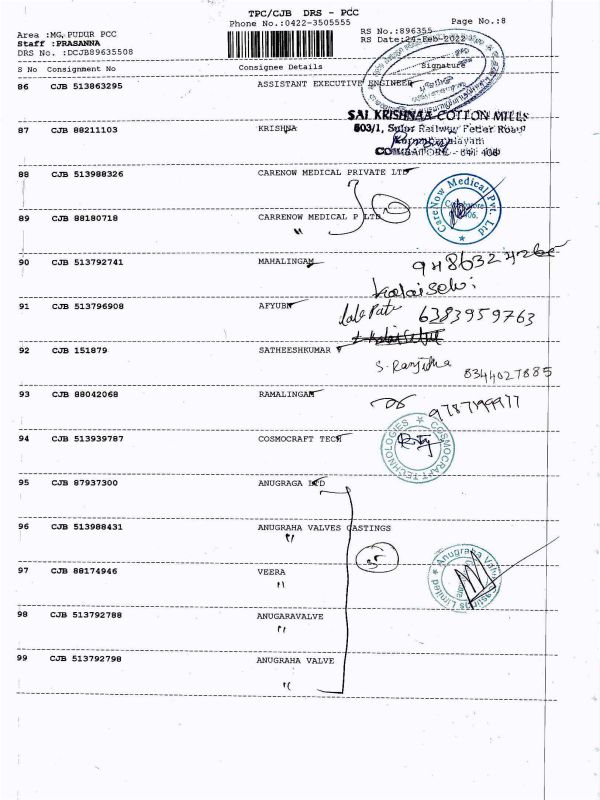 TPC/CJB DRS - PCC
Phone No.:0422-3505555
Page No.:8
Area :MG, PUDUR PCC
RS No.:896355
Staff :PRASANNA
RS Date:24-Feb-2022
DRS No. :DCJB89635508
S No Consignment No Consignee Details Signature
86 CJB 513863295 ASSISTANT EXECUTIVE ENGINEER
SAI KRISHNAA COTTON MILLS
87 CJB 88211103 KRISHNA
603/1, Sulur Railway Feeder Road
COIMBATORE - 641 406
88 CJB 513988326 CARENOW MEDICAL PRIVATE LTD
CareNow Medical Pvt. Ltd
89 CJB 88180718 CARRENOW MEDICAL P LTD
"
90 CJB 513792741 MAHALINGAM
Kalaiselvi
91 CJB 513796908 AFYUBN
6383959763
92 CJB 151879 SATHEESHKUMAR V
S. Ranjitha 8344027885
93 CJB 88042068 RAMALINGAM
94 CJB 513939787 COSMOCRAFT TECH
COSMOCRAFT TECHNOLOGIES
95 CJB 87937300 ANUGRAGA LTD
96 CJB 513988431 ANUGRAHA VALVES CASTINGS
"
Anugraha Valve Castings Limited
97 CJB 88174946 VEERA
"
98 CJB 513792788 ANUGARAVALVE
"
99 CJB 513792798 ANUGRAHA VALVE
"